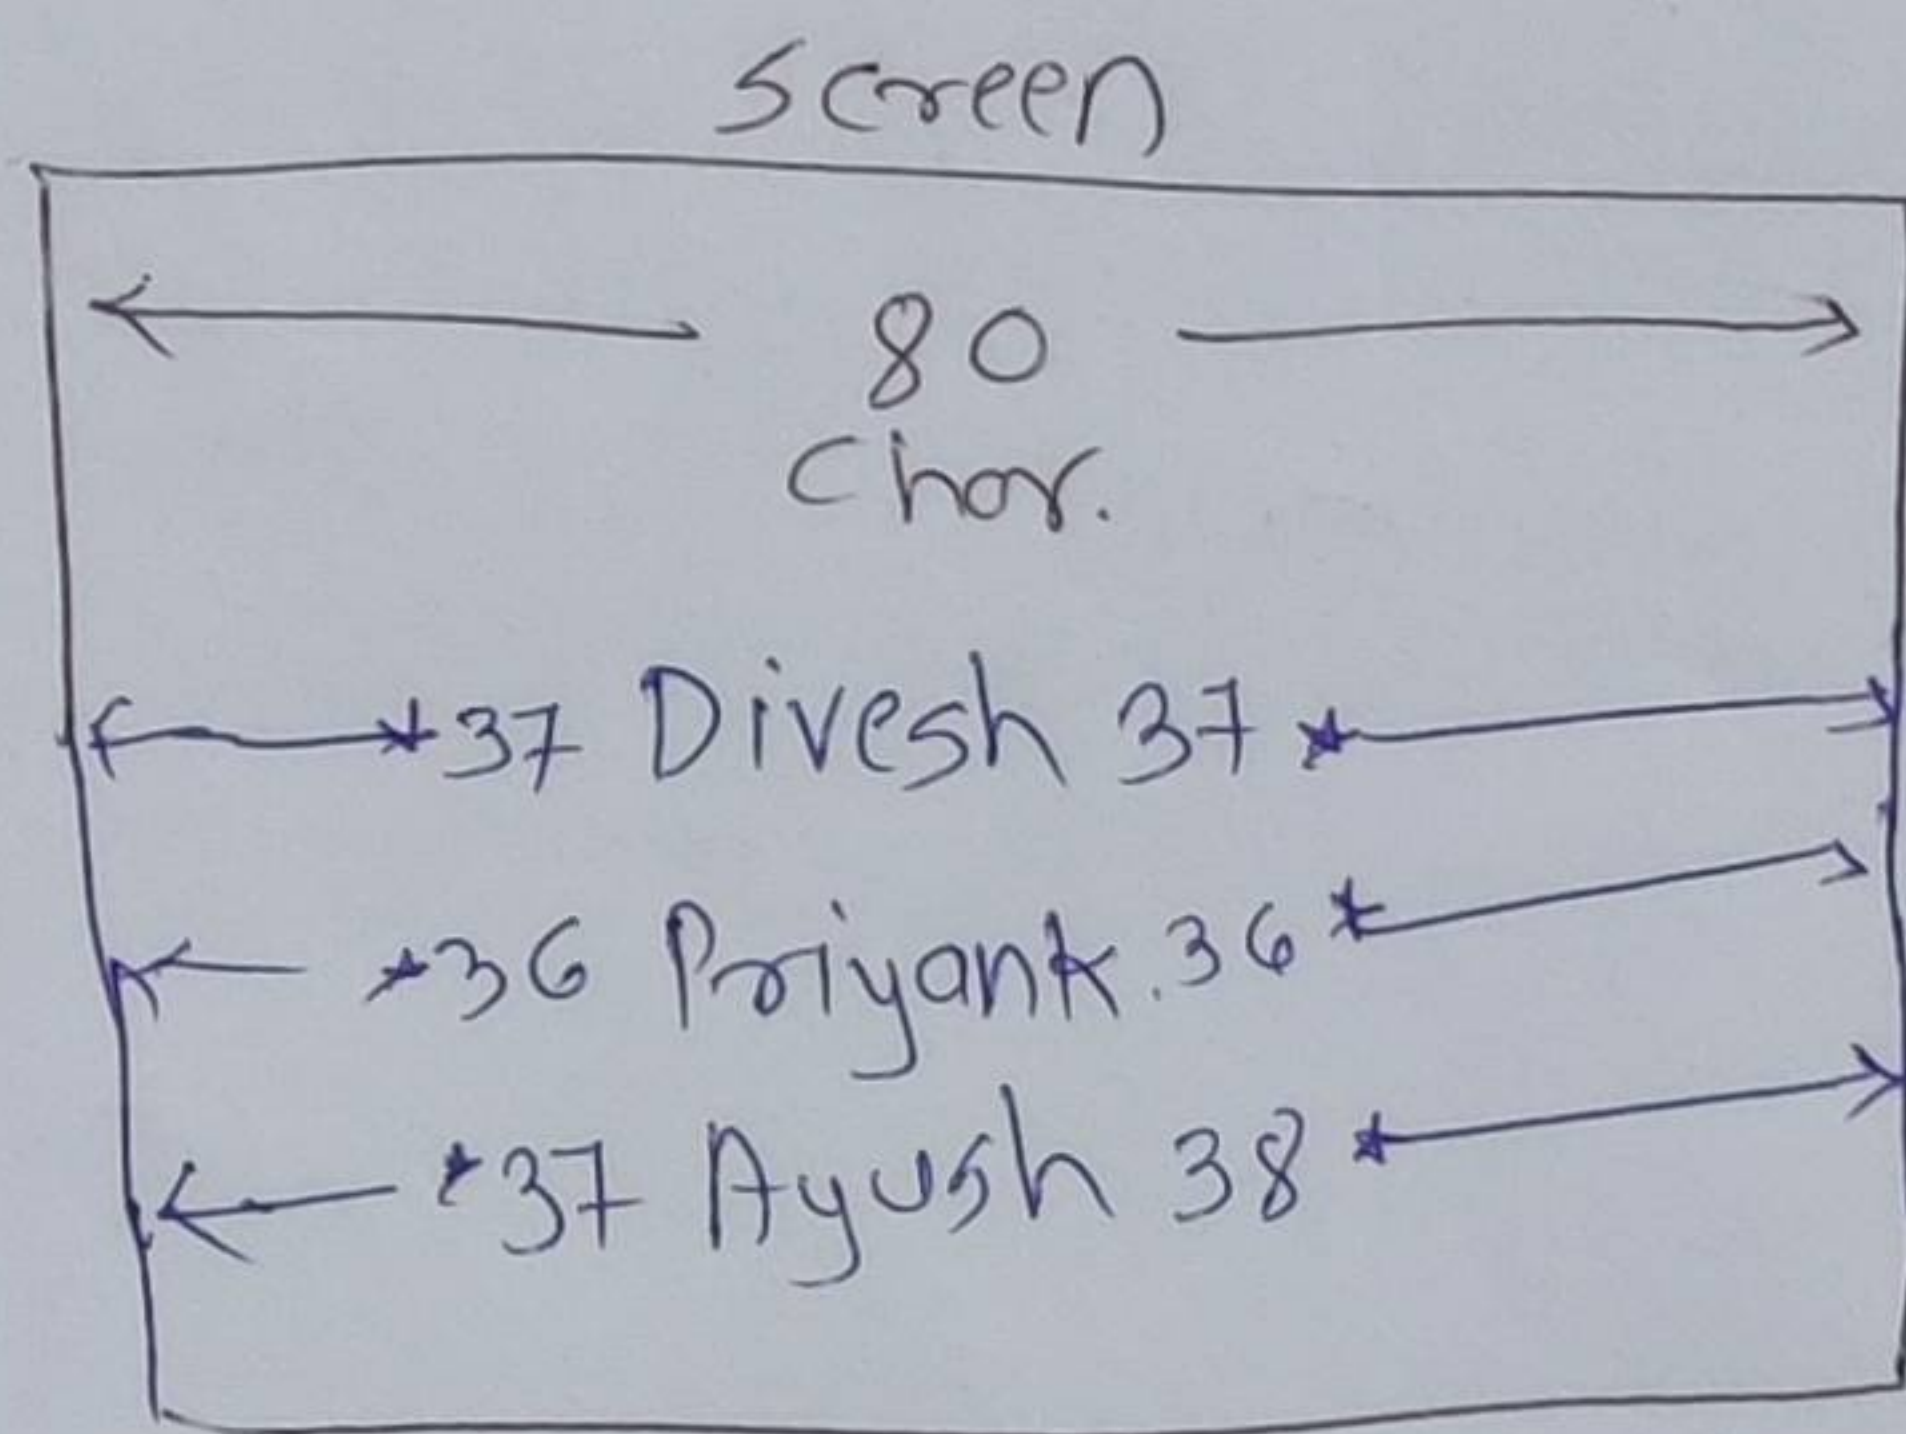 Screen
80
Char.
*37 Divesh 37*
*36 Priyank.36*
*37 Ayush 38*